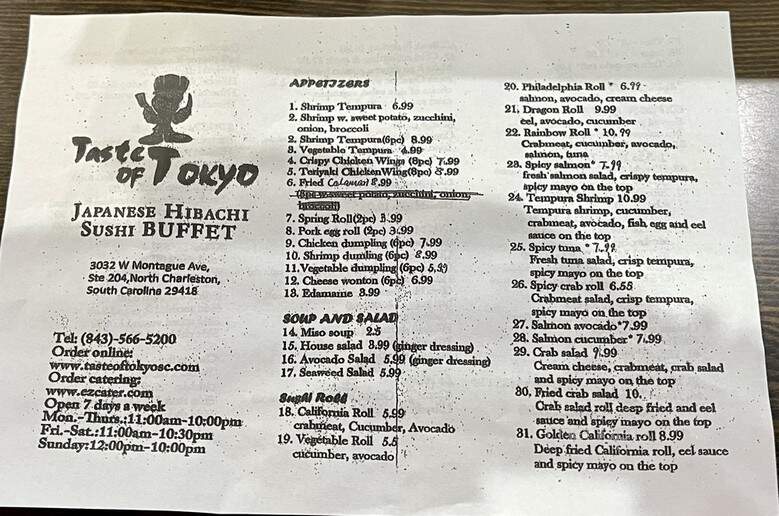 Taste
OF TOKYO
JAPANESE HIBACHI
SUSHI BUFFET
3032 W Montague Ave,
Ste 204,North Charleston,
South Carolina 29418
Tel: (843)-566-5200
Order online:
www.tasteoftokyosc.com
Order catering:
www.ezcater.com
Open 7 days a week
Mon.-Thurs.:11:00am-10:00pm
Fri.-Sat.:11:00am-10:30pm
Sunday:12:00pm-10:00pm
APPETIZERS
1. Shrimp Tempura 6.99
2. Shrimp w. sweet potato, zucchini,
onion, broccoli
2. Shrimp Tempura(6pc) 8.99
3. Vegetable Tempura 4.99
4. Crispy Chicken Wings (8pc) 7.99
5. Teriyaki ChickenWing(8pc) 8.99
6. Fried Calamari 8.99
(8pc w.sweet potato, zucchini, onion,
broccoli)
7. Spring Roll(2pc) 3.99
8. Pork egg roll (2pc) 3.99
9. Chicken dumpling (6pc) 7.99
10. Shrimp dumling (6pc) 8.99
11.Vegetable dumpling (6pc) 5.99
12. Cheese wonton (6pc) 6.99
13. Edamame 3.99
SOUP AND SALAD
14. Miso soup 2.5
15. House salad 3.99 (ginger dressing)
16. Avocado Salad 5.99 (ginger dressing)
17. Seaweed Salad 5.99
Sushi Roll
18. California Roll 5.99
crabmeat, Cucumber, Avocado
19. Vegetable Roll 5.5
cucumber, avocado
20. Philadelphia Roll * 6.99
salmon, avocado, cream cheese
21. Dragon Roll 9.99
eel, avocado, cucumber
22. Rainbow Roll * 10.99
Crabmeat, cucumber, avocado,
salmon, tuna
23. Spicy salmon* 7.99
fresh salmon salad, crispy tempura,
spicy mayo on the top
24. Tempura Shrimp 10.99
Tempura shrimp, cucumber,
crabmeat, avocado, fish egg and eel
sauce on the top
25. Spicy tuna * 7.99
Fresh tuna salad, crisp tempura,
spicy mayo on the top
26. Spicy crab roll 6.55
Crabmeat salad, crisp tempura,
spicy mayo on the top
27. Salmon avocado*7.99
28. Salmon cucumber* 7.99
29. Crab salad 9.99
Cream cheese, crabmeat, crab salad
and spicy mayo on the top
30. Fried crab salad 10.
Crab salad roll deep fried and eel
sauce and spicy mayo on the top
31. Golden California roll 8.99
Deep fried California roll, eel sauce
and spicy mayo on the top